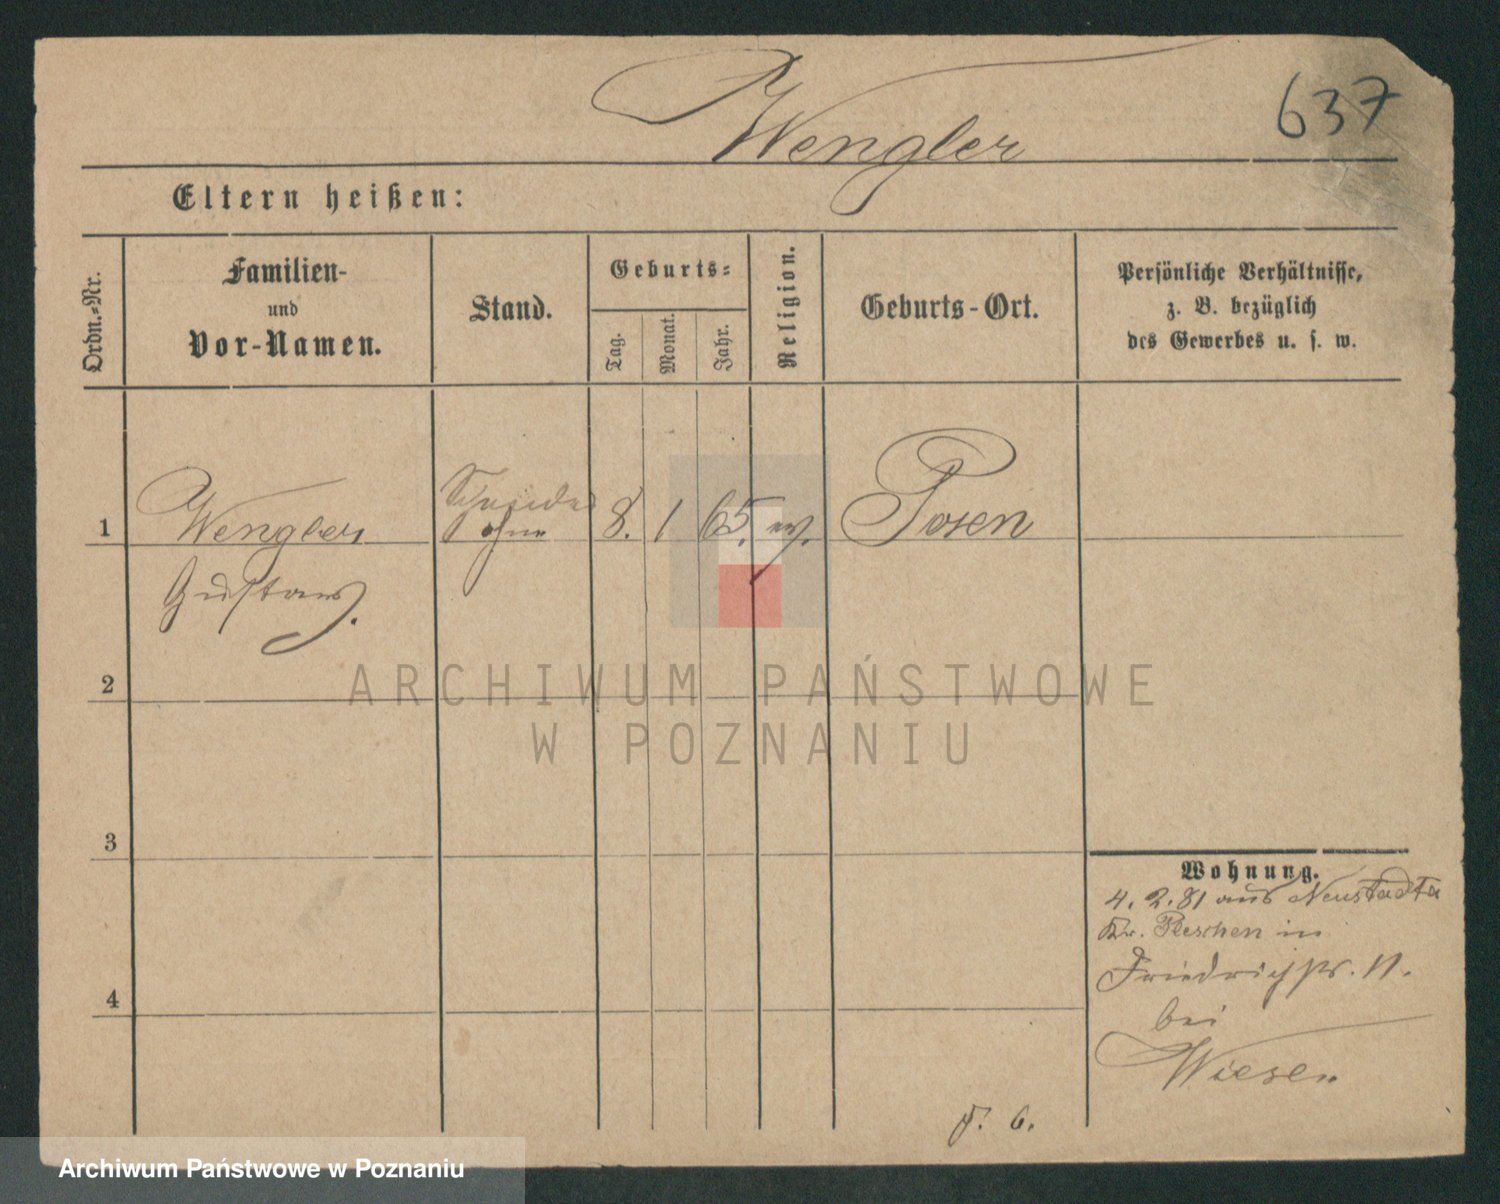 Wengler
637
Eltern heißen:
Ordn.-Nr.
Familien-
und
Vor-Namen.
Stand.
Geburts-
Tag.
Monat.
Jahr.
Religion.
Geburts-Ort.
Persönliche Verhältnisse,
z. B. bezüglich
des Gewerbes u. s. w.
1
Wengler
Gustav.
Schneider
ohne
8.
1
65.
ev.
Posen
2
3
4
Wohnung.
4. 2. 81 aus Neustadt a
Kr. Pleschen in
Friedrichstr. 11.
bei
Wieser
6.
ARCHIWUM PAŃSTWOWE
W POZNANIU
Archiwum Państwowe w Poznaniu